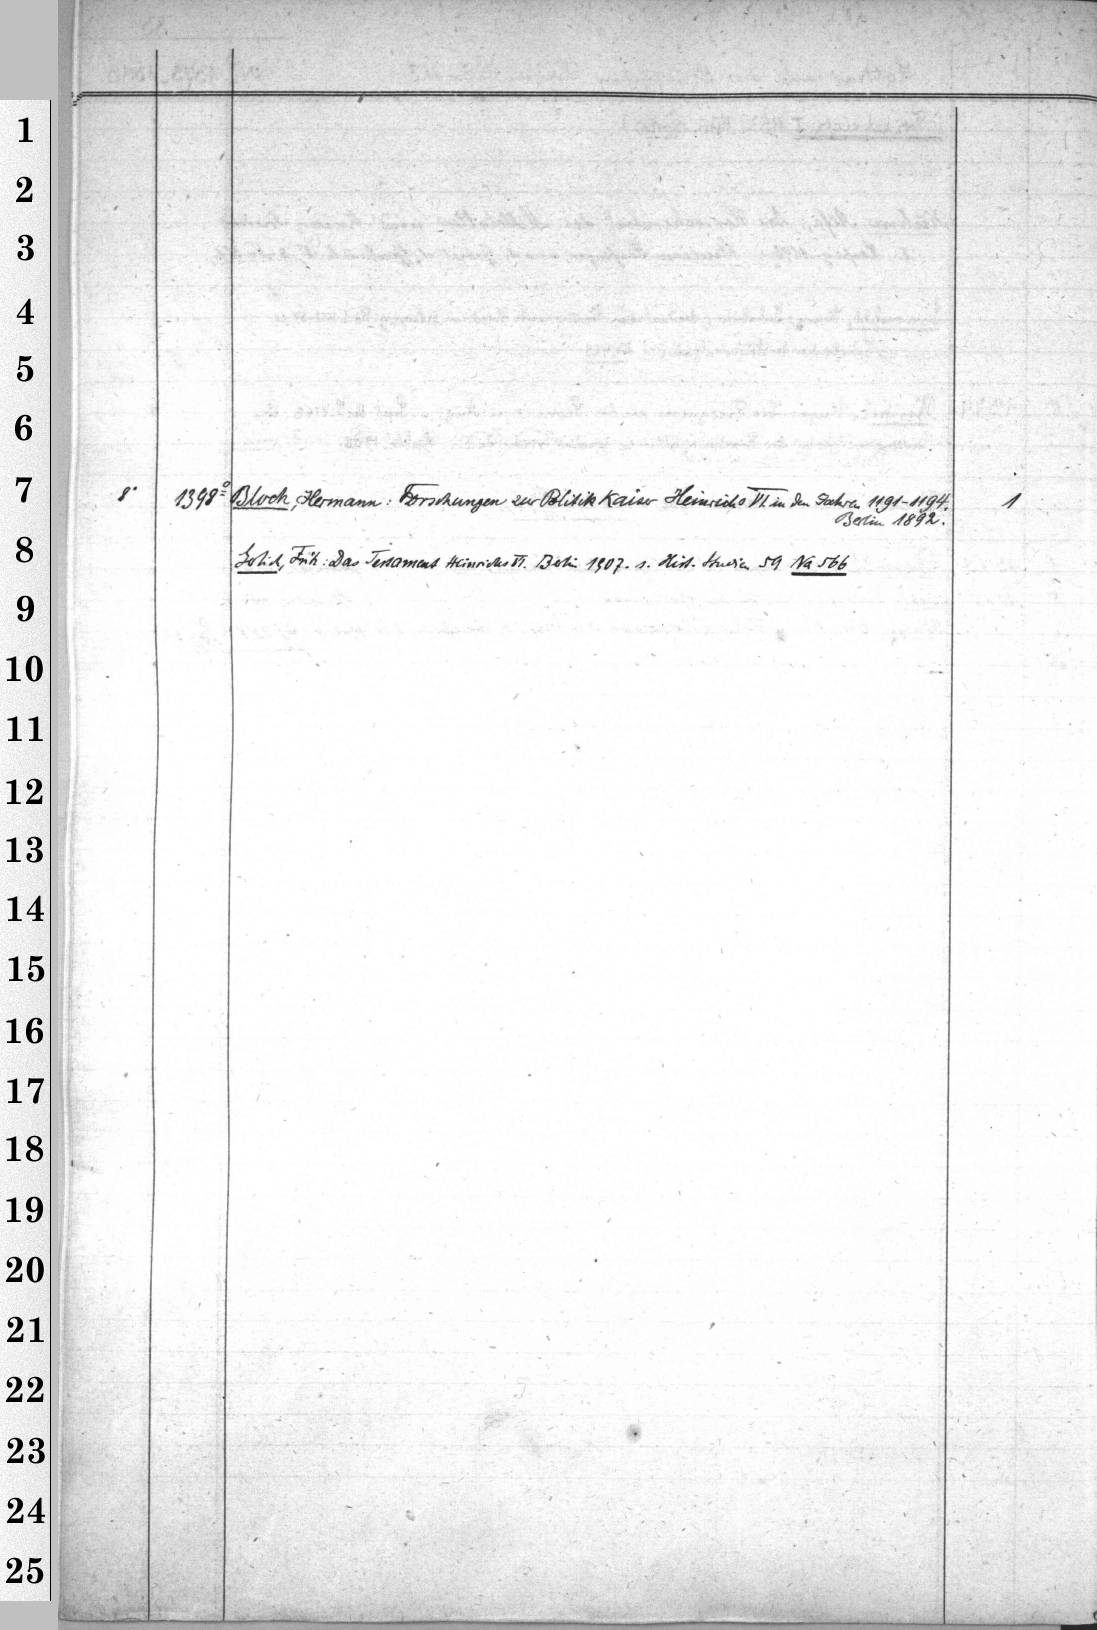 1
2
3
4
5
6
7
8° 1398° Bloch, Hermann: Forschungen zur Politik Kaiser Heinrichs VI. in den Jahren 1191-1194. 1
Berlin 1892.
8
Das Testament Heinrichs VI. Berlin 1907. s. Hist. Studien 59 Na 566
9
10
11
12
13
14
15
16
17
18
19
20
21
22
23
24
25